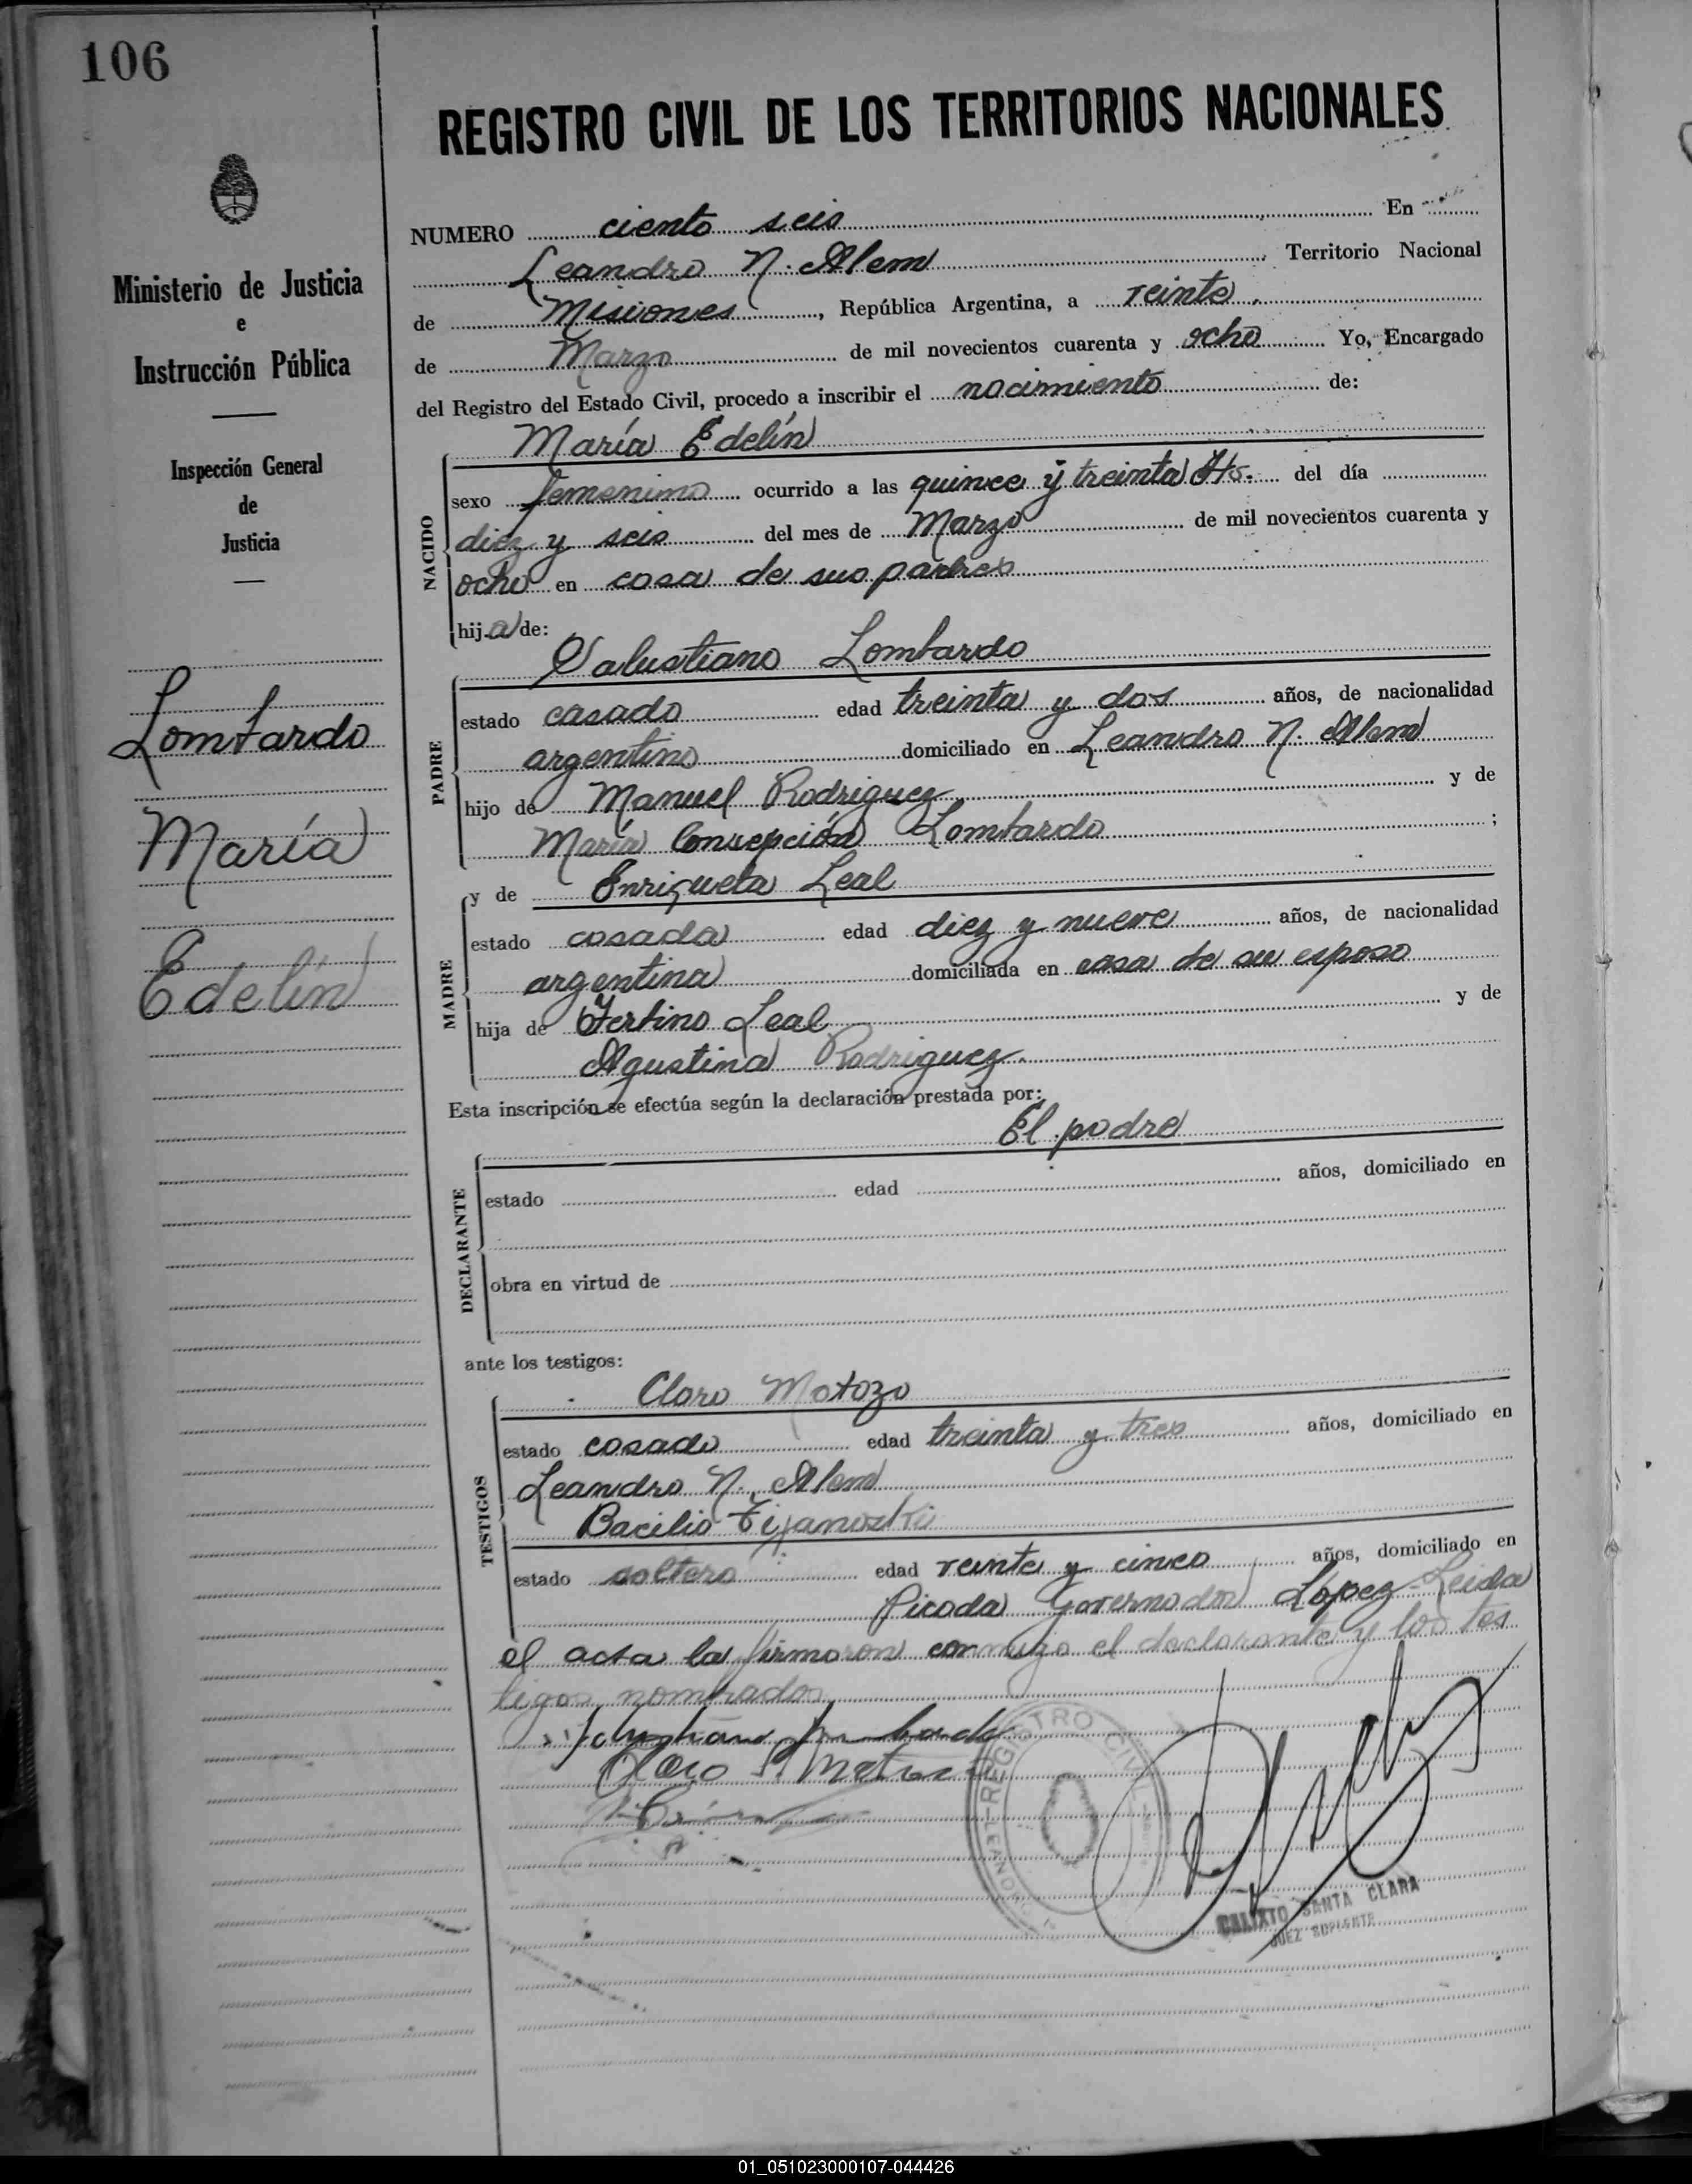 106
REGISTRO CIVIL DE LOS TERRITORIOS NACIONALES
Ministerio de Justicia
e
Instrucción Pública
Inspección General
de
Justicia
Lombardo
María
Edelín
NUMERO ciento seis En
Leandro N. Alem Territorio Nacional
de Misiones, República Argentina, a veinte
de Marzo de mil novecientos cuarenta y ocho Yo, Encargado
del Registro del Estado Civil, procedo a inscribir el nacimiento de:
María Edelín
NACIDO
sexo femenino ocurrido a las quince y treinta Hs. del día
diez y seis del mes de Marzo de mil novecientos cuarenta y
ocho en casa de sus padres
hija de:
Salustiano Lombardo
PADRE
estado casado edad treinta y dos años, de nacionalidad
argentino domiciliado en Leandro N. Alem
hijo de Manuel Rodriguez y de
María Consepción Lombardo ;
y de Enriqueta Leal
MADRE
estado casada edad diez y nueve años, de nacionalidad
argentina domiciliada en casa de su esposo
hija de Leal y de
Agustina Rodriguez.
Esta inscripción se efectúa según la declaración prestada por:
El padre
DECLARANTE
estado edad años, domiciliado en
obra en virtud de
ante los testigos:
Claro Motozo
TESTIGOS
estado casado edad treinta y tres años, domiciliado en
Leandro N. Alem
Bacilio
estado soltero edad veinte y cinco años, domiciliado en
Picada Governador López-Leida
el acta la firmaron conmigo el declarante y los tes
tigos nombrados
REGISTRO CIVIL
LEANDRO
CALIXTO SANTA CLARA
JUEZ SUPLENTE
01_051023000107-044426